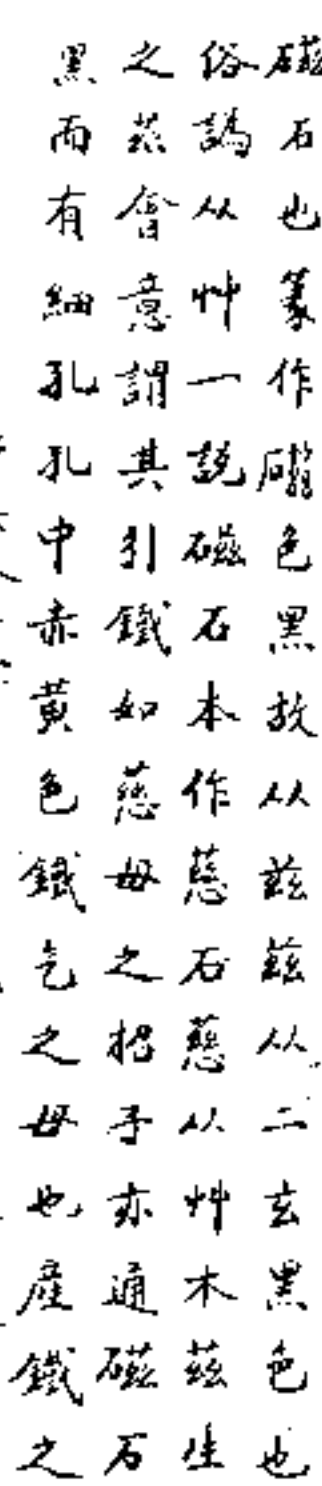 磁石也篆作礠色黑故从玆玆从二玄黑色也
俗譌从艸一說磁石本作慈石慈从艸木茲生
之茲會意謂其引鐵如慈母之招子亦通磁石
黑而有細孔孔中赤黃色鐵乞之母也產鐵之